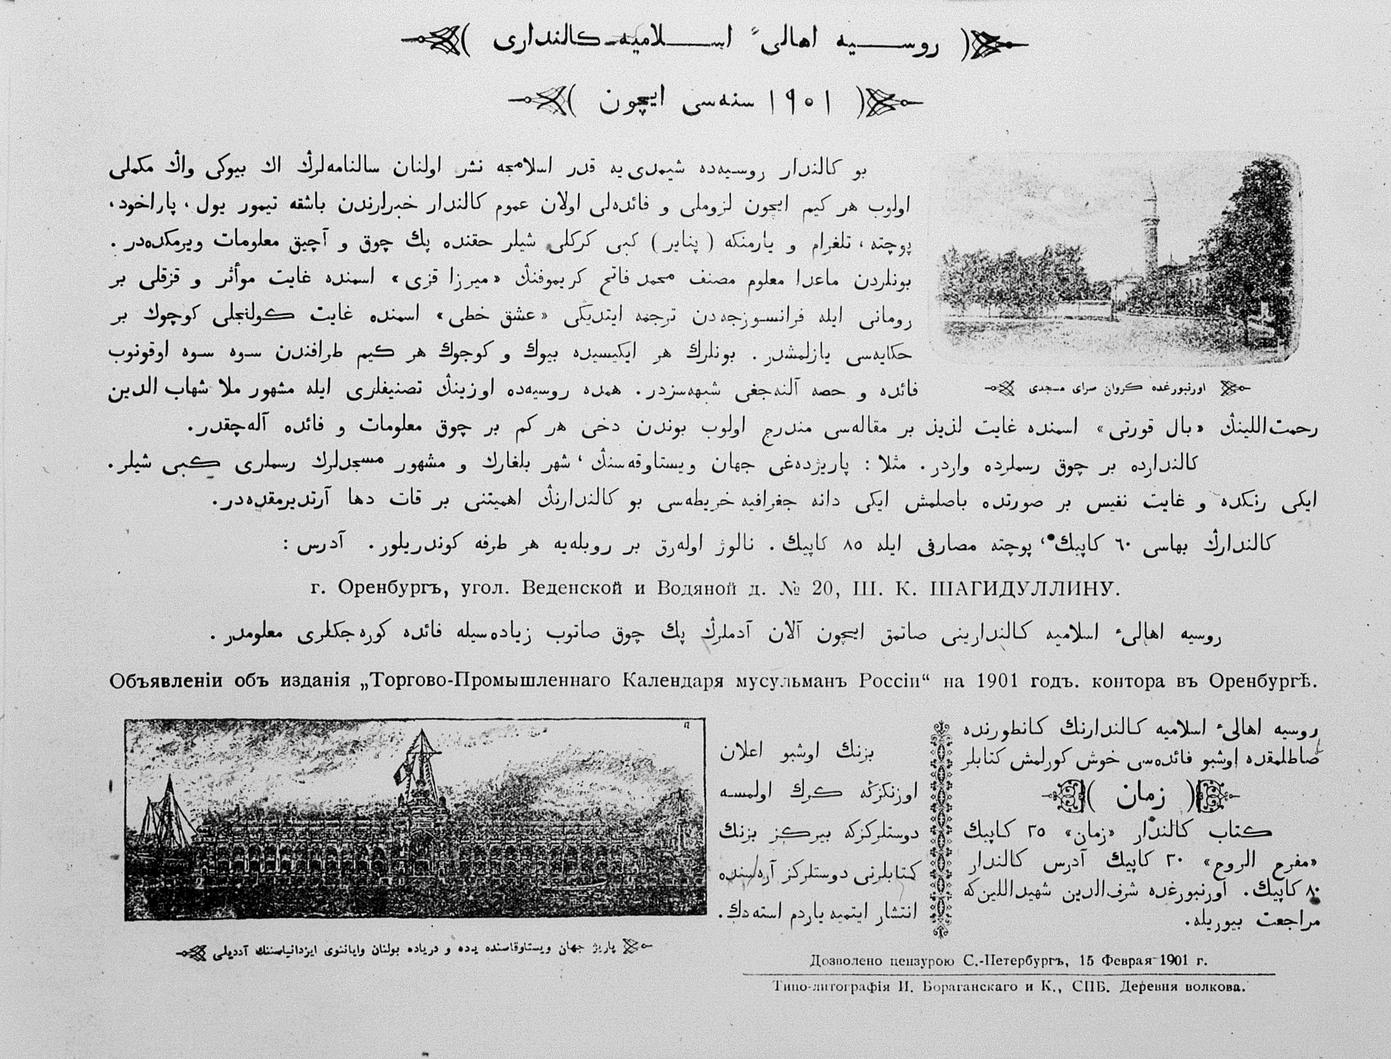 روسیه اهالیٔ اسلامیه کالنداری
۱۹۰۱ سنه‌سی ایچون
بو کالندار روسیه‌ده شیمدی‌یه قدر اسلامجه نشر اولنان سالنامه‌لرڭ اڭ بیوکی واڭ مکملی
اولوب هر کیم ایچون لزوملی و فائده‌لی اولان عموم کالندار خبرلرندن باشقه تیمور یول، پاراخود،
پوچته، تلغرام و یارمنکه (پنایر) کبی کرکلی شیلر حقنده پك چوق و آچیق معلومات ویرمکده‌در.
بونلردن ماعدا معلوم مصنف محمد فاتح کریموفنڭ «میرزا قزی» اسمنده غایت مؤاثر و قزقلی بر
رومانی ایله فرانسوزجه‌دن ترجمه ایتدیکی «عشق خطی» اسمنده غایت کولنجلی کوچوك بر
حکایه‌سی یازلمشدر. بونلرڭ هر ایکیسیده بیوك و کوچوك هر کیم طرافندن سوه سوه اوقونوب
فائده و حصه آلنه‌جغی شبهه‌سزدر. همده روسیه‌ده اوزینڭ تصنیفلری ایله مشهور ملا شهاب الدین
اورنبورغده کروان سرای مسجدی
رحمت‌اللینڭ «بال قورتی» اسمنده غایت لذیذ بر مقاله‌سی مندرج اولوب بوندن دخی هر کم بر چوق معلومات و فائده آله‌چقدر.
کالندارده بر چوق رسملرده واردر. مثلا: پاریژده‌غی جهان ویستاوقه‌سنڭ، شهر بلغارك و مشهور مسجدلرك رسملری کبی شیلر.
ایکی رنکده و غایت نفیس بر صورتده باصلمش ایکی دانه جغرافیه خریطه‌سی بو کالندارنڭ اهمیتنی بر قات دها آرتدیرمقده‌در.
کالندارڭ بهاسی ٦٠ کاپیك، پوچته مصارفی ایله ٨٥ کاپیك. نالوژ اوله‌رق بر روبله‌یه هر طرفه کوندریلور. آدرس:
г. Оренбургъ, угол. Веденской и Водяной д. № 20, Ш. К. ШАГИДУЛЛИНУ.
روسیه اهالیٔ اسلامیه کالندارینی صاتمق ایچون آلان آدملرڭ پك چوق صاتوب زیاده‌سیله فائده کوره‌جکلری معلومدر.
Объявленіи объ изданія „Торгово-Промышленнаго Календаря мусульманъ Россіи“ на 1901 годъ. контора въ Оренбургѣ.
روسیه اهالیٔ اسلامیه کالندارنك کانطورنده
صاطلمقده اوشبو فائده‌سی خوش کورلمش کتابلر
زمان
کتاب کالندار «زمان» ٢٥ کاپیك
«مفرح الروح» ٢٠ کاپیك آدرس کالندار
٨٠ کاپیك. اورنبورغده شرف‌الدین شهیداللین‌که
مراجعت بیوریله.
بزنك اوشبو اعلان
اوزنکزکه کرك اولمسه
دوستلرکزکه بیرکز بزنك
کتابلرنی دوستلرکز آره‌سنده
انتشار ایتمیه یاردم استه‌دك.
پاریژ جهان ویستاوقاسنده یده و دریاده بولنان وایاننوی ایزدانیاسننك آددیلی
Дозволено цензурою С.-Петербургъ, 15 Февраля 1901 г.
Типо-литографія И. Бораганскаго и К., СПБ. Деревня волкова.